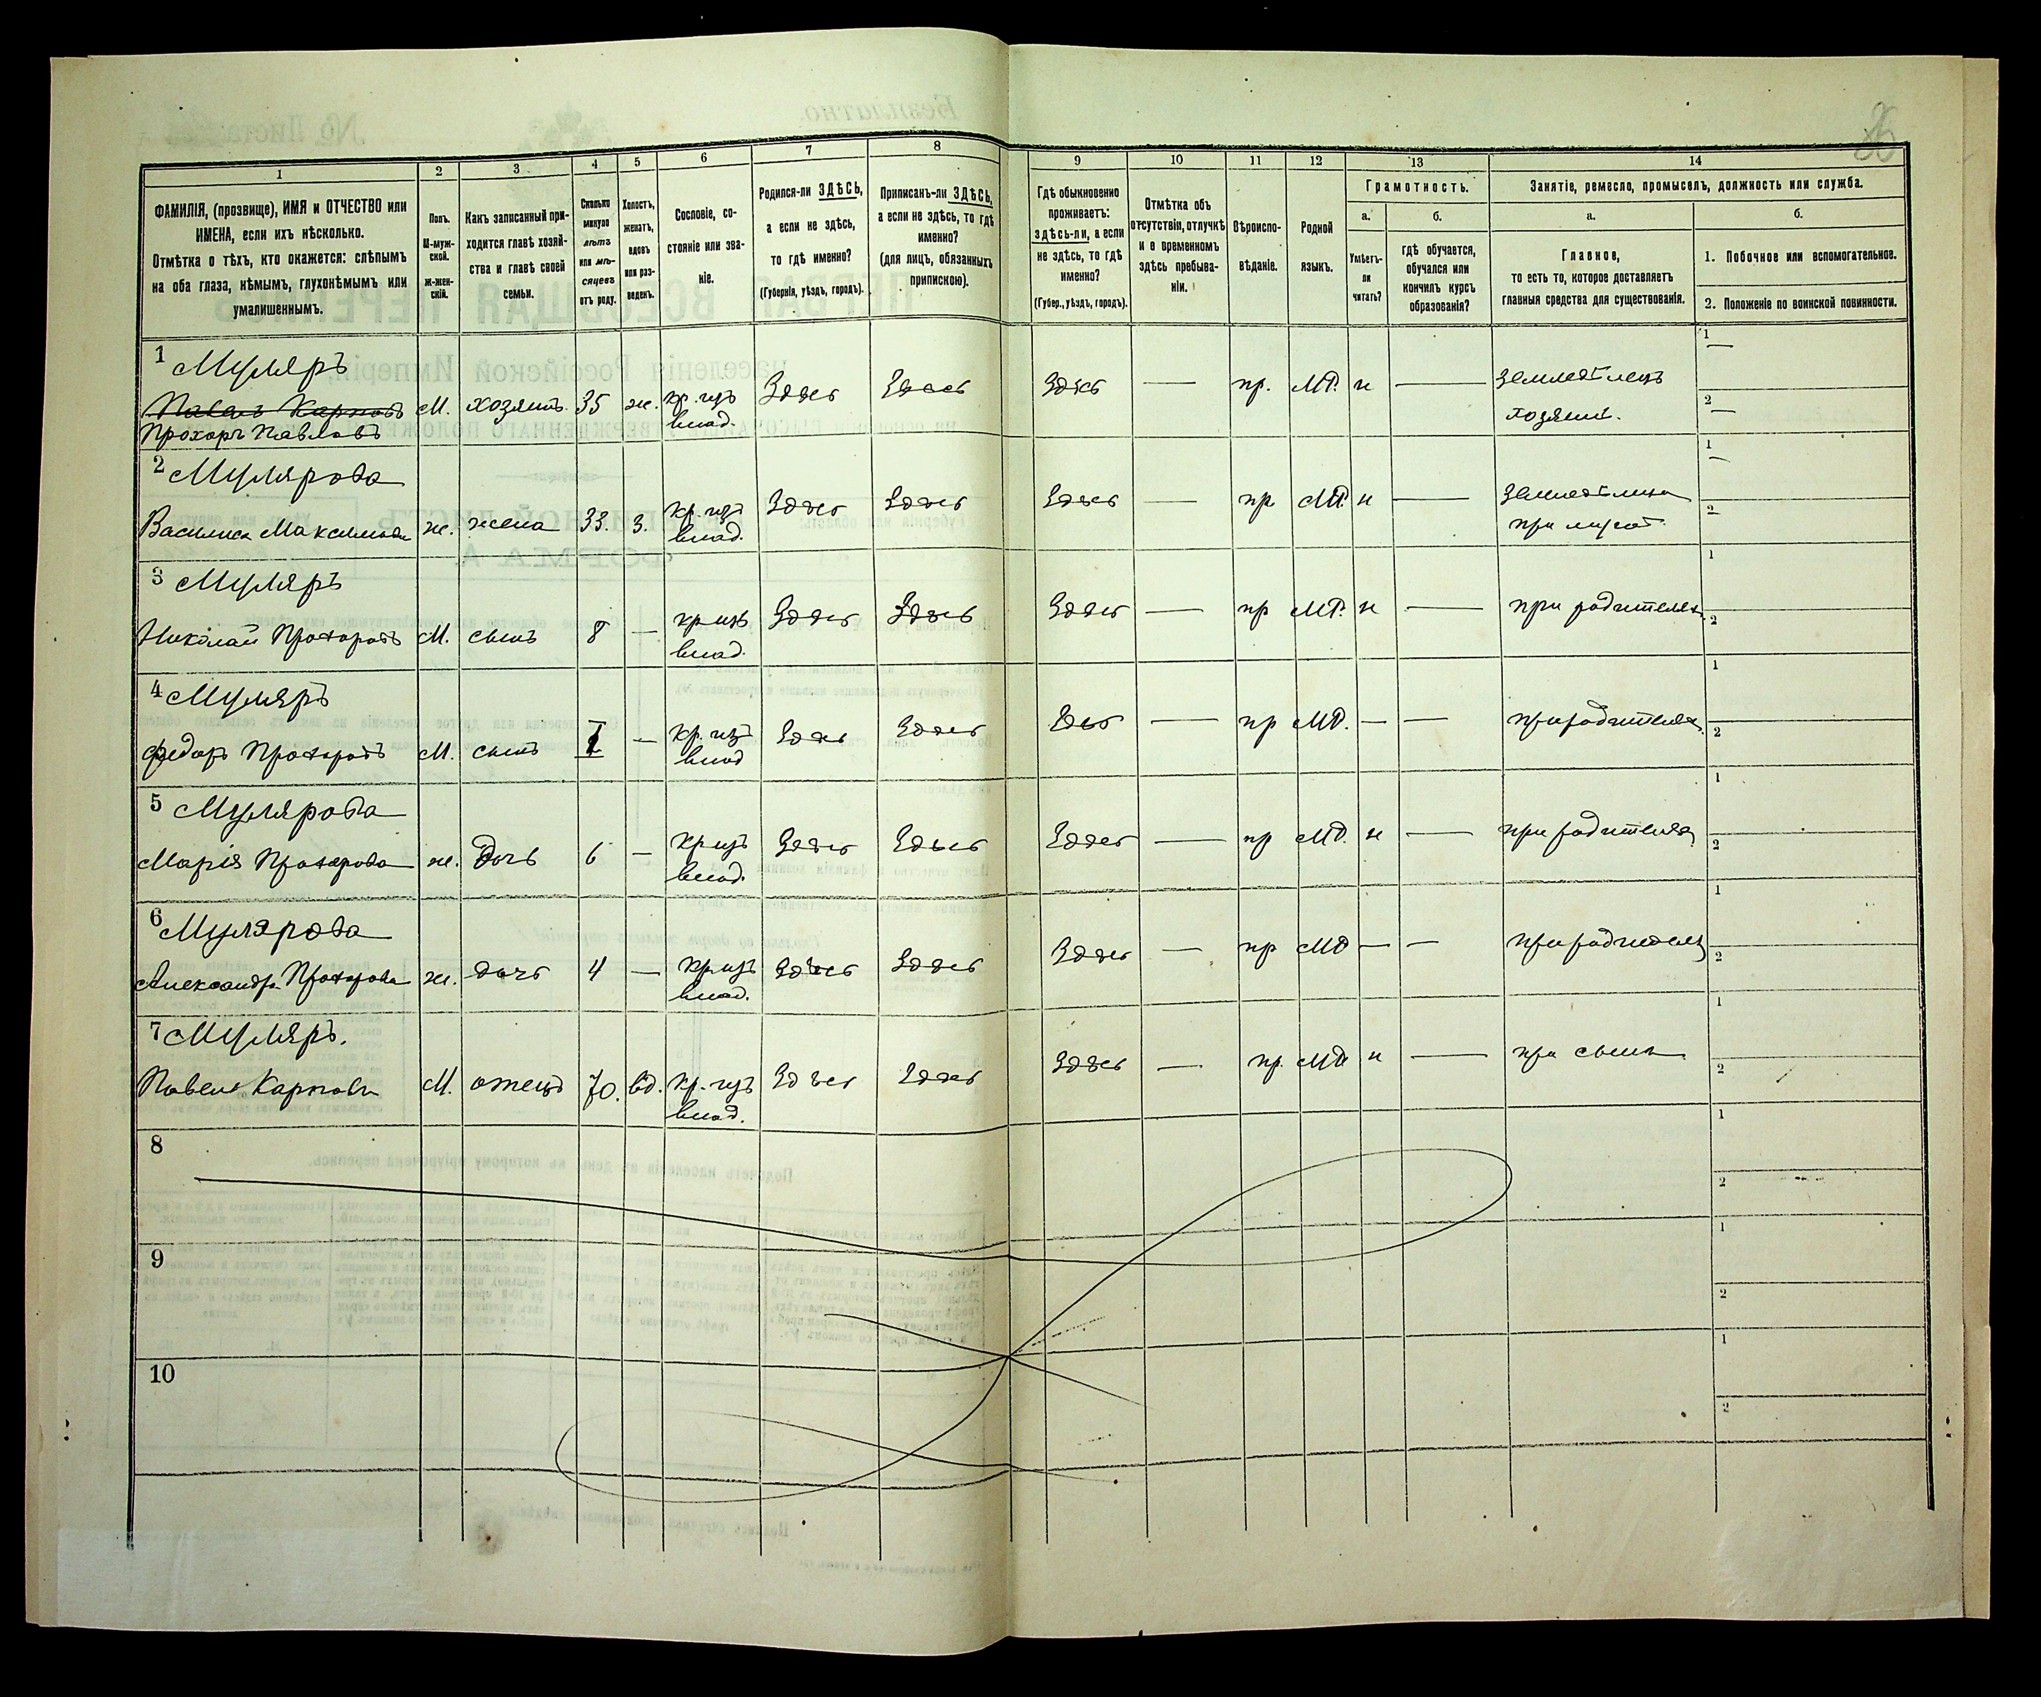 26
1 2 3 4 5 6 7 8 9 10 11 12 13 14
ФАМИЛІЯ, (прозвище), ИМЯ и ОТЧЕСТВО или
ИМЕНА, если ихъ нѣсколько.
Отмѣтка о тѣхъ, кто окажется: слѣпымъ
на оба глаза, нѣмымъ, глухонѣмымъ или
умалишеннымъ.
Полъ.
М-муж-
ской.
Ж-жен-
скій.
Какъ записанный при-
ходится главѣ хозяй-
ства и главѣ своей
семьи.
Сколько
минуло
лѣтъ
или мѣ-
сяцевъ
отъ роду.
Холостъ,
женатъ,
вдовъ
или раз-
веденъ.
Сословіе, со-
стояніе или зва-
ніе.
Родился-ли ЗДѢСЬ,
а если не здѣсь,
то гдѣ именно?
(Губернія, уѣздъ, городъ).
Приписанъ-ли ЗДѢСЬ,
а если не здѣсь, то гдѣ
именно?
(для лицъ, обязанныхъ
припискою).
Гдѣ обыкновенно
проживаетъ:
здѣсь-ли, а если
не здѣсь, то гдѣ
именно?
(Губер., уѣздъ, городъ).
Отмѣтка объ
отсутствіи, отлучкѣ
и о временномъ
здѣсь пребыва-
ніи.
Вѣроиспо-
вѣданіе.
Родной
языкъ.
Грамотность.
а.
Умѣетъ-
ли
читать?
б.
гдѣ обучается,
обучался или
кончилъ курсъ
образованія?
Занятіе, ремесло, промыселъ, должность или служба.
а.
Главное,
то есть то, которое доставляетъ
главныя средства для существованія.
б.
1. Побочное или вспомогательное.
2. Положеніе по воинской повинности.
1 Муляръ
Павелъ Карповъ М. хозяинъ 35 ж. кр. изъ Здѣсь Здѣсь Здѣсь — пр. МР. н — земледѣлецъ 1 —
Прохоръ Павловъ влад. хозяинъ. 2 —
2 Мулярова
Василиса Максимова ж. жена 33. з. кр. изъ Здѣсь Здѣсь Здѣсь — пр МР. н — 1 —
влад. при мужѣ. 2
3 Муляръ
Николай Прохоровъ М. сынъ 8 — кр изъ Здѣсь Здѣсь Здѣсь — пр МР. н — при родителяхъ 1
влад. 2
4 Муляръ
Федоръ Прохоровъ М. сынъ 1 — кр. изъ Здѣсь Здѣсь Здѣсь — пр МР. — — при родителяхъ 1
влад 2
5 Мулярова
Марія Прохорова ж. дочь 6 — кр изъ Здѣсь Здѣсь Здѣсь — пр МР. н — при родителяхъ 1
влад. 2
6 Мулярова
Александра Прохорова ж. дочь 4 — кр изъ Здѣсь Здѣсь Здѣсь — пр МР — — при родителяхъ 1
влад. 2
7 Муляръ.
Павелъ Карповъ М. отецъ 70. вд. кр. изъ Здѣсь Здѣсь Здѣсь — пр. МР н — при сынѣ 1
влад. 2
8 1
2
9 1
2
10 1
2